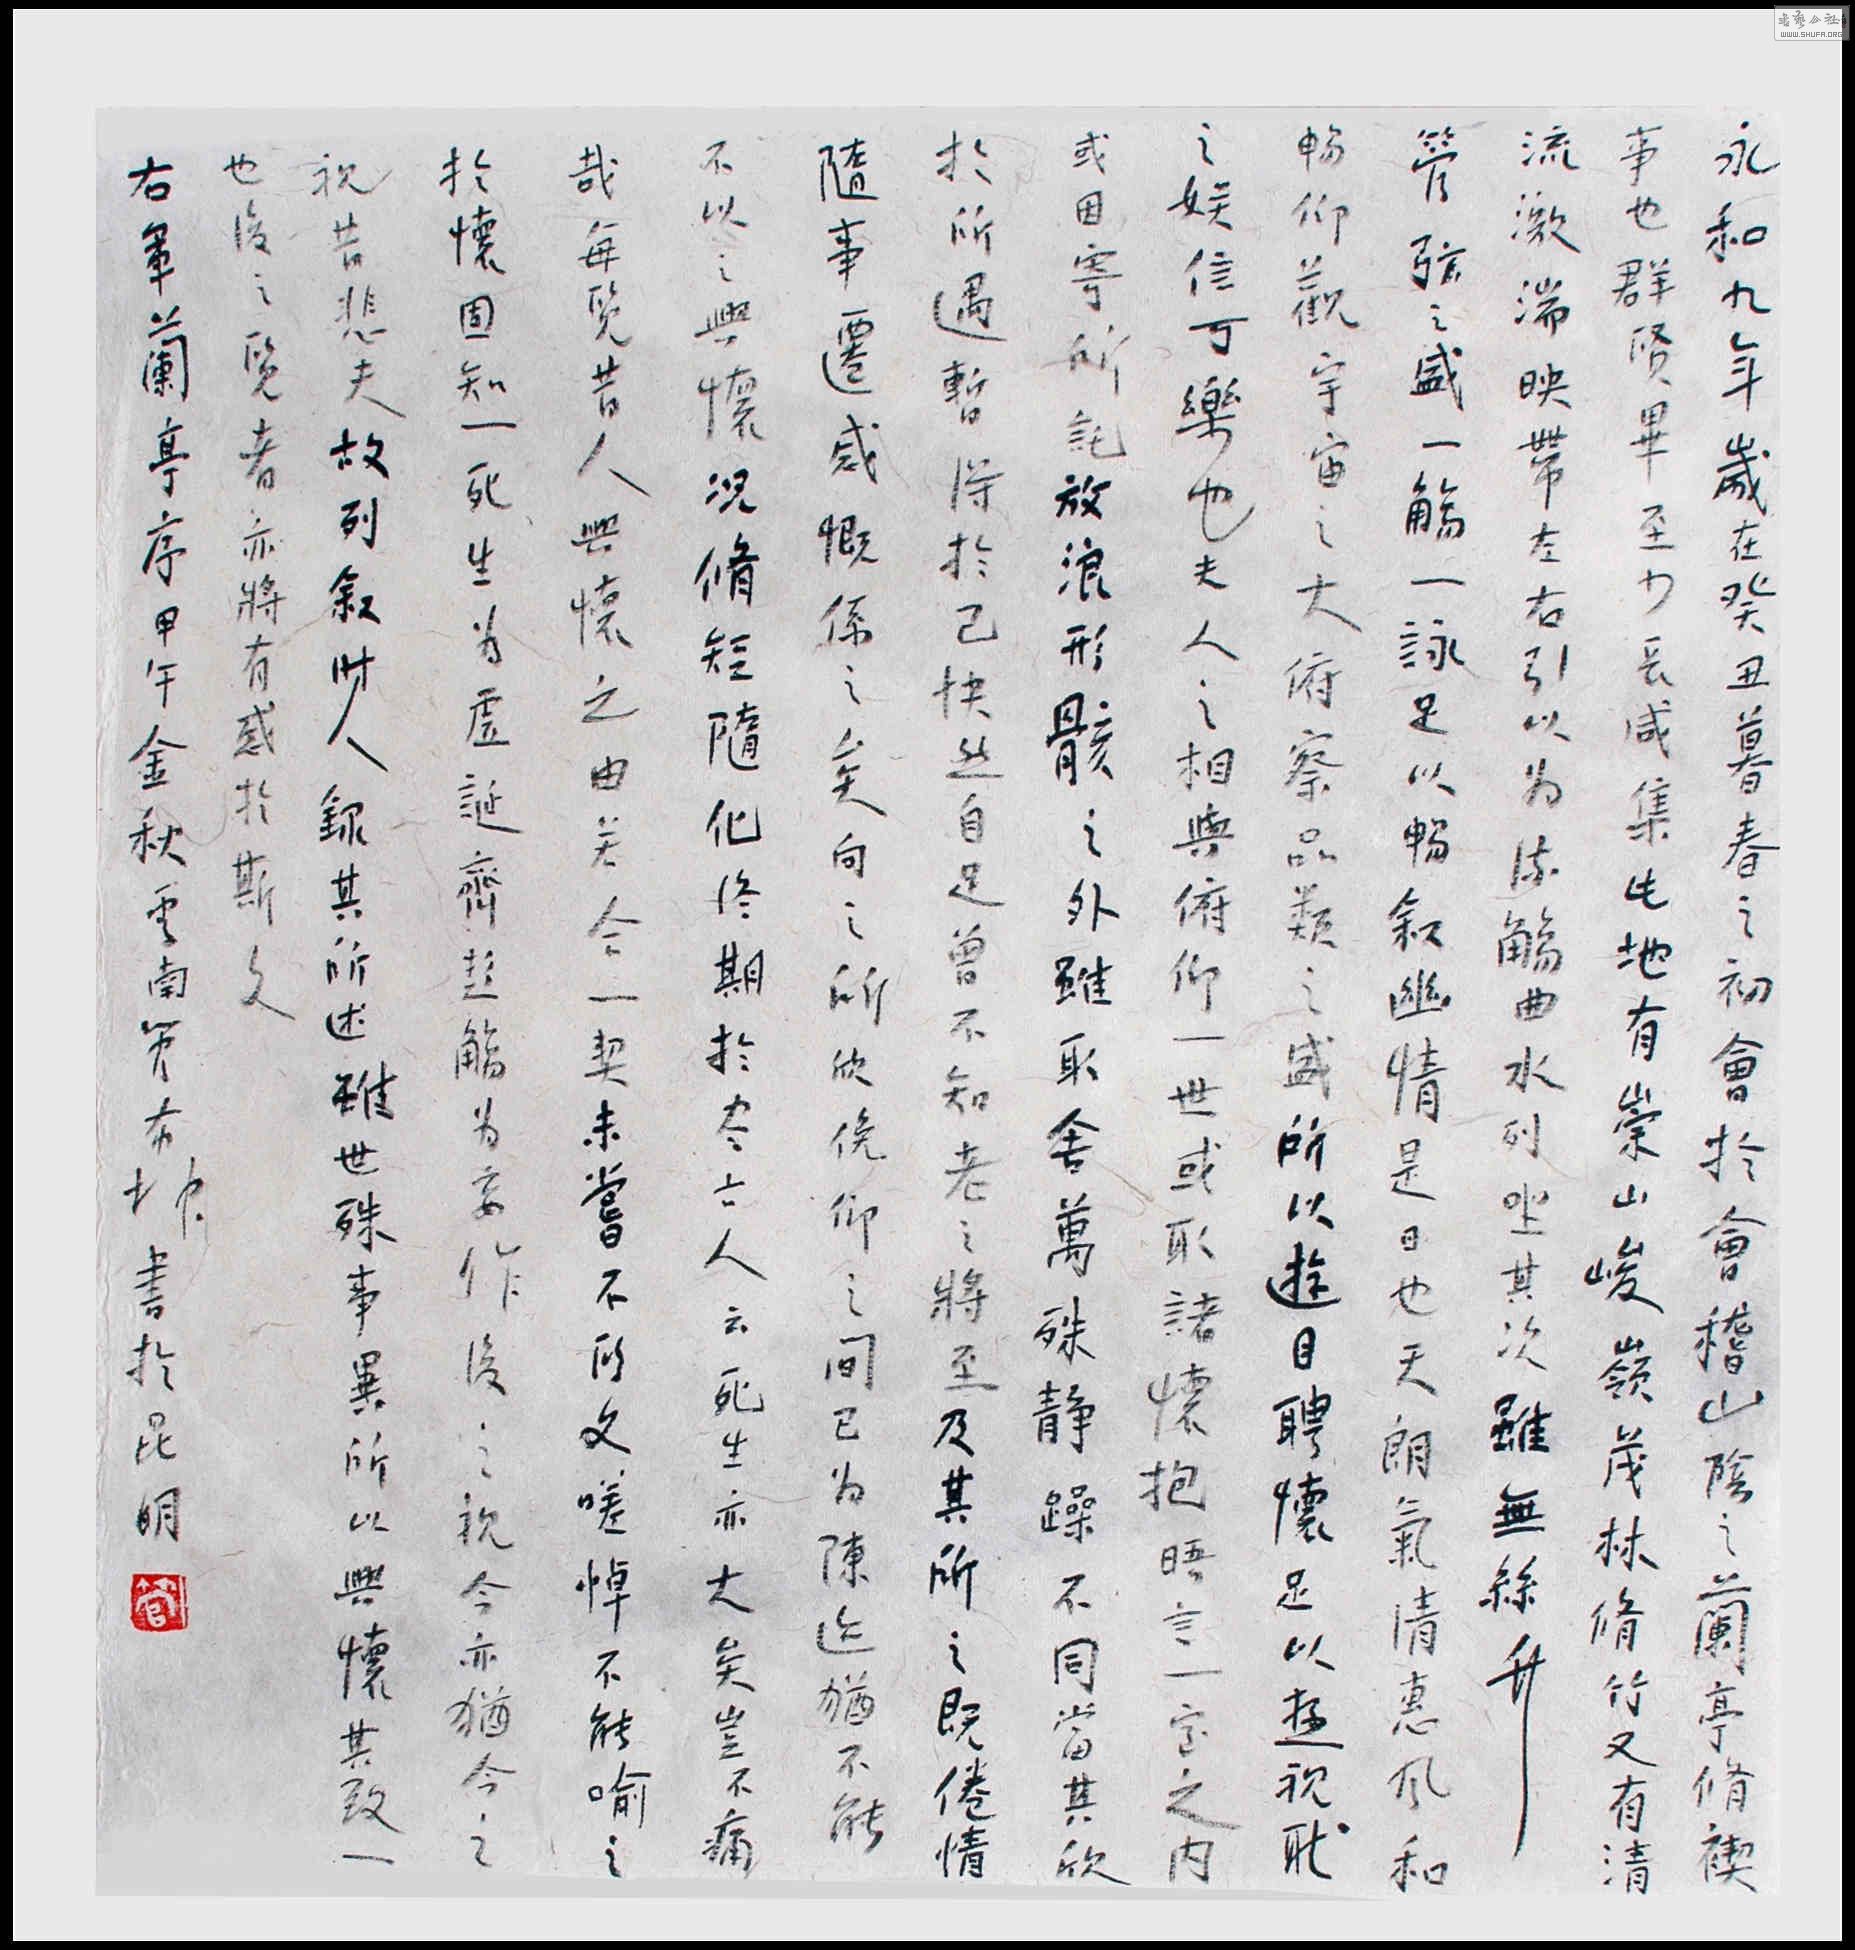 永和九年歲在癸丑暮春之初會於會稽山陰之蘭亭脩禊
事也群賢畢至少長咸集此地有崇山峻嶺茂林脩竹又有清
流激湍映帶左右引以為流觴曲水列坐其次雖無絲竹
管弦之盛一觴一詠足以暢叙幽情是日也天朗氣清惠風和
暢仰觀宇宙之大俯察品類之盛所以遊目聘懷足以極視聽
之娛信可樂也夫人之相與俯仰一世或取諸懷抱晤言一室之內
或因寄所託放浪形骸之外雖取舍萬殊静躁不同當其欣
於所遇暫得於己快然自足曾不知老之將至及其所之既倦情
隨事遷感慨係之矣向之所欣俛仰之間已為陳迹猶不能
不以之興懷況脩短隨化終期於盡古人云死生亦大矣豈不痛
哉每覽昔人興懷之由若合一契未嘗不臨文嗟悼不能喻之
於懷固知一死生為虛誕齊彭觴為妄作後之視今亦猶今之
視昔悲夫故列叙時人錄其所述雖世殊事異所以興懷其致一
也後之覽者亦將有感於斯文
右軍蘭亭序甲午金秋雲南管布坤書於昆明
管
书艺公社
WWW.SHUFA.ORG